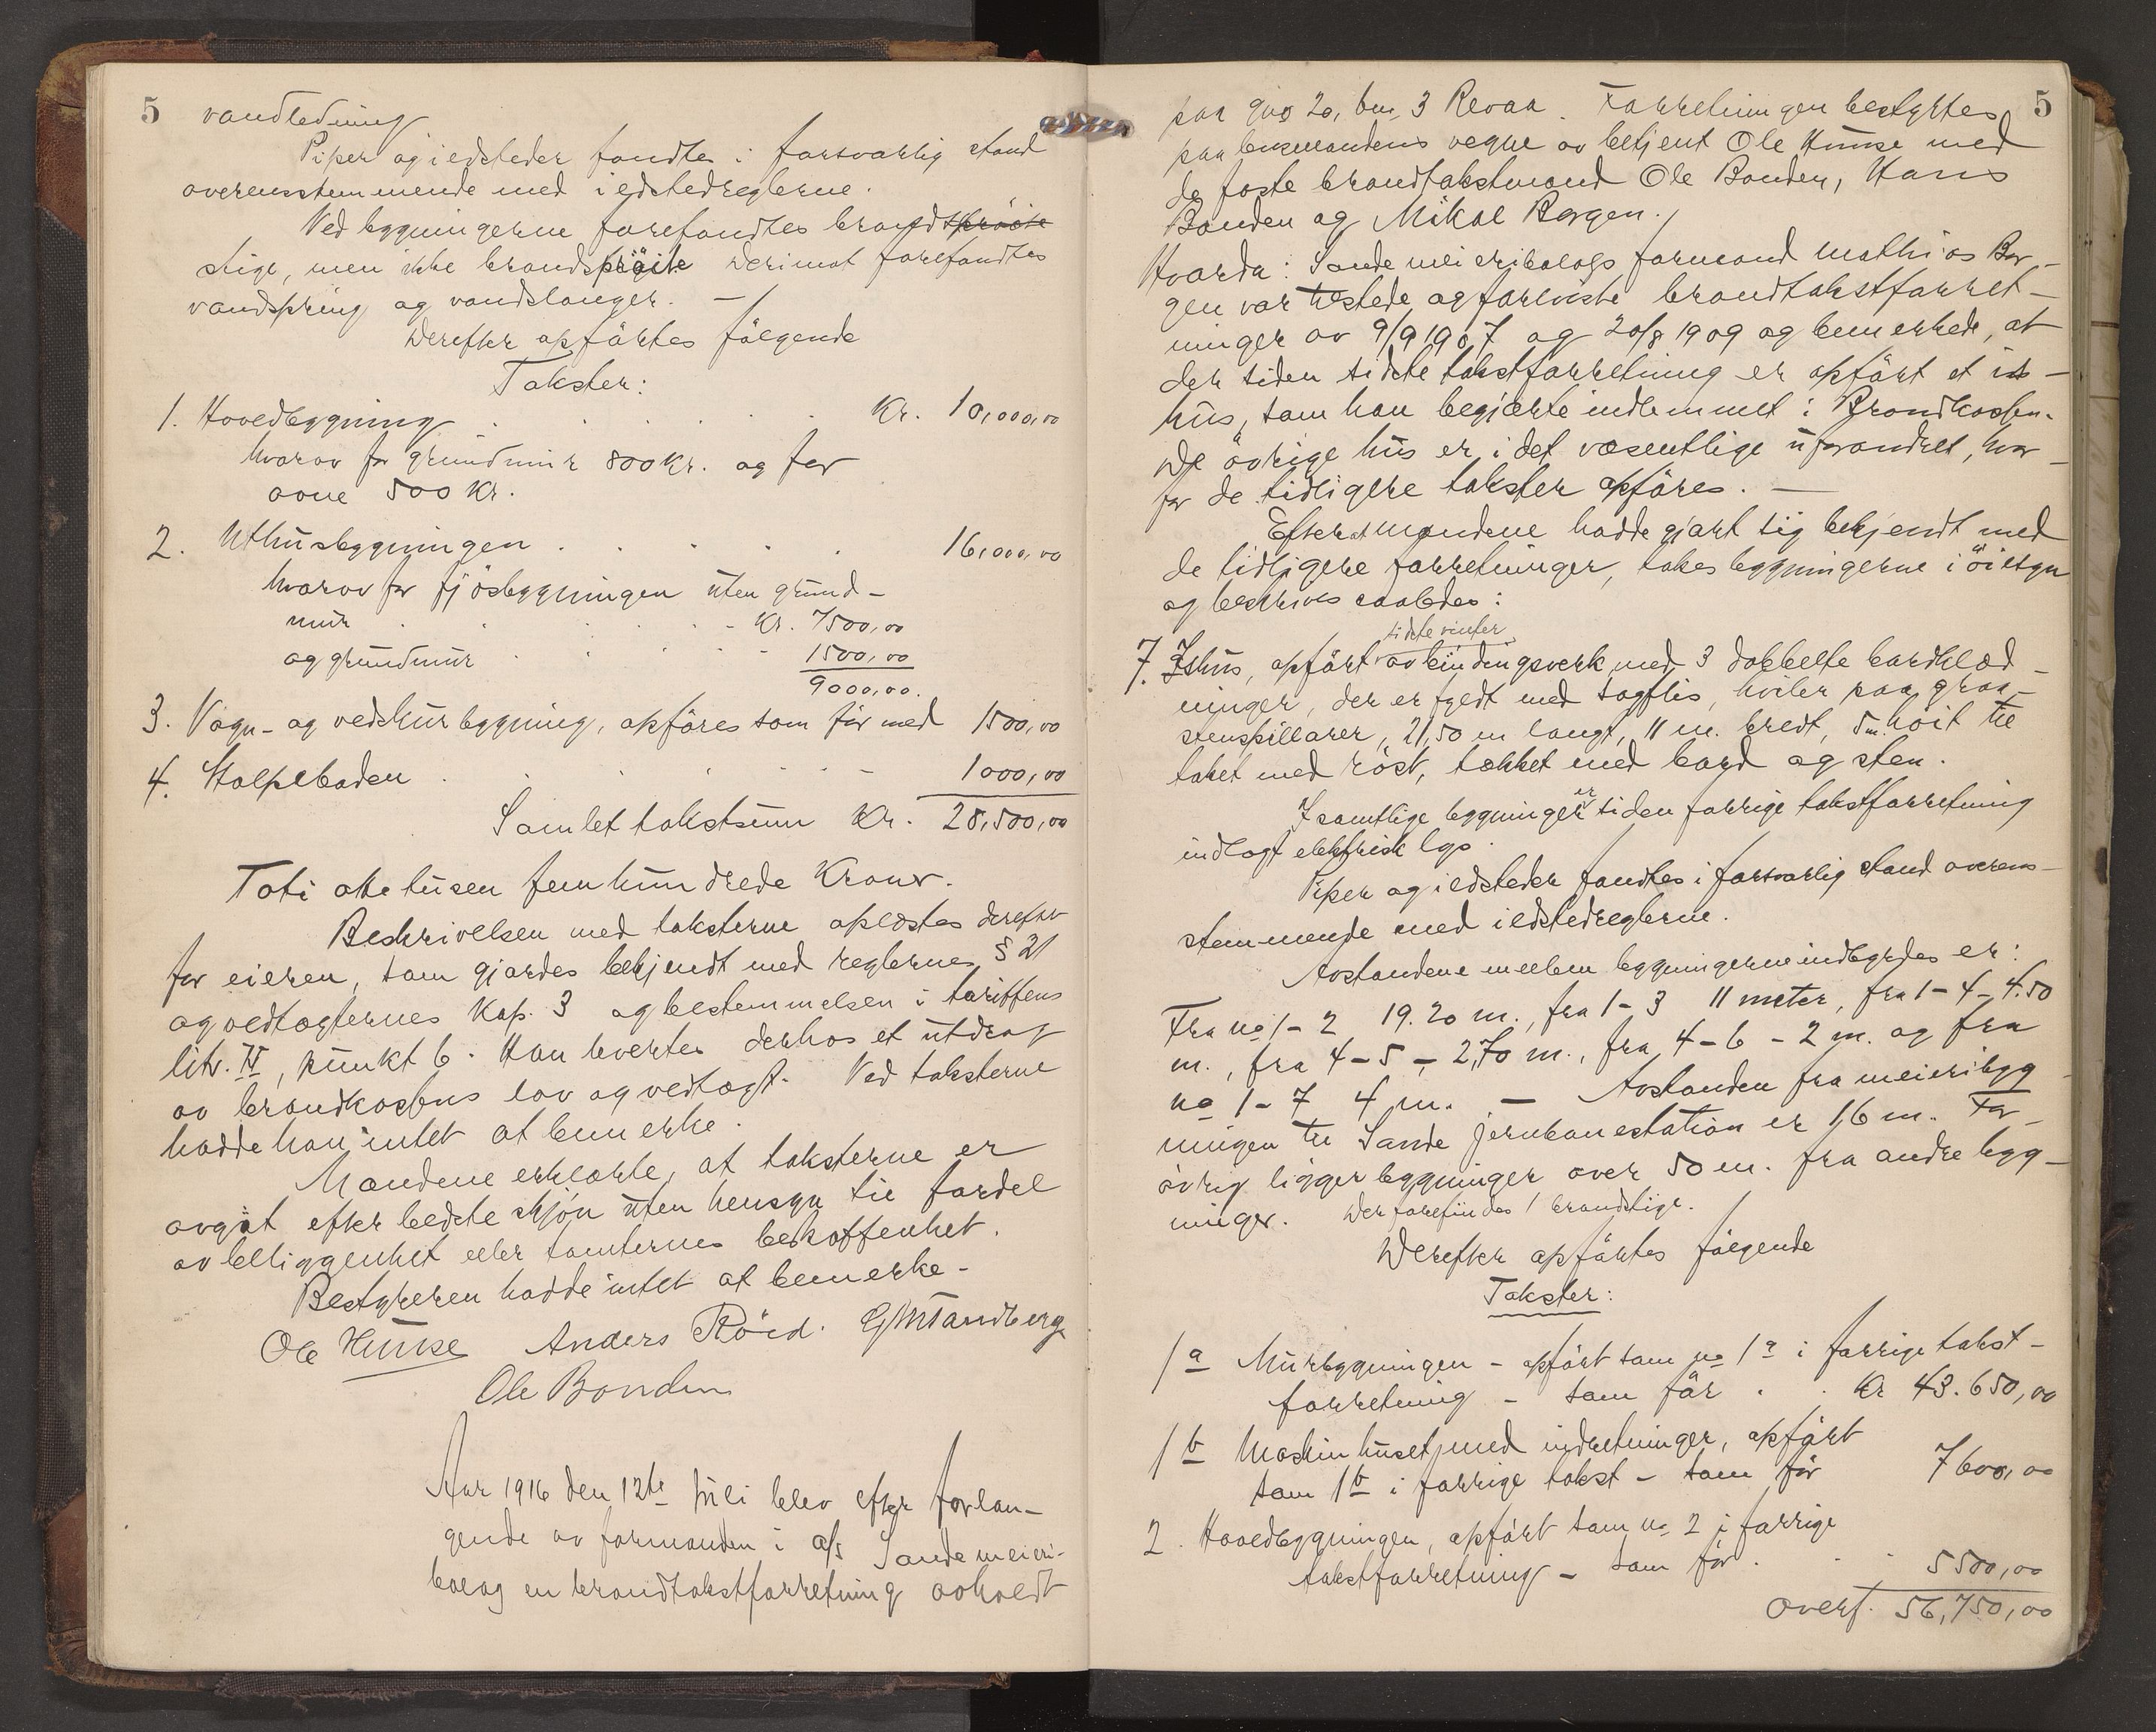 5 vandledning
Piper og ildsteder fandtes i forsvarlig stand
overensstemmende med ildstedreglerne.
Ved bygningerne forefandtes brandsprøite
stige, men ikke brandsprøite derimot forefandtes
vandspring og vandslanger. —
Derefter opførtes følgende
Takster:
1. Hovedbygning . . . . . Kr. 10,000,00
hvorav for grundmur 800 Kr. og for
ovne 500 Kr.
2. Uthusbygningen . . . . . 16,000,00
hvorav for fjøsbygningen uten grund-
mur . . . . . - Kr. 7500,00
og grundmur . . . . - 1500,00
9000,00.
3. Vogn- og vedskurbygning, opføres som før med 1500,00
4. Stolpeboden . . . . . - 1000,00
Samlet takstsum Kr. 28,500,00
Toti otte tusen femhundrede Kroner.
Beskrivelsen med taksterne oplæstes derefter
for eieren, som gjordes bekjendt med reglernes § 21
og vedtægternes Kap. 3 og bestemmelsen i tariffens
litr. IV, punkt 6. Han levertes derhos et utdrag
av brandkassens lov og vedtægt. Ved taksterne
hadde han intet at bemerke.
Mændene erklærte, at taksterne er
avgit efter bedste skjøn uten hensyn til fordel
av beliggenhet eller tomternes beskaffenhet.
Bestyreren hadde intet at bemerke.
Ole Hunse Anders Röed. G M Tandberg
Ole Bonden
Aar 1916 den 12te juli blev efter forlan-
gende av formanden i a/s Sande meieri-
bolag en brandtakstforretning avholdt
paa gno 20, bno 3 Revaa. Forretningen bestyrtes 5
paa lensmandens vegne av betjent Ole Hunse med
de faste brandtakstmænd Ole Bonden, Hans
Bonden og Mikal Bergen.
Hvorda: Sande meieribolags formand Mathias Ber-
gen var tilstede og foreviste brandtakstforret-
ninger av 9/9 1907 og 20/8 1909 og bemerkede, at
der siden sidste takstforretning er opført et is-
hus, som han begjærte indlemmet i Brandkassen.
De øvrige hus er i det væsentlige uforandret, hvor-
for de tidligere takster opføres. —
Efterat mændene hadde gjort sig bekjendt med
de tidligere forretninger, tokes bygningerne i øiesyn
og beskrives saaledes:
sidste vinter
7. Ishus, opført av bindingsverk med 3 dobbelte bordklæd-
ninger, der er fyldt med sagflis, hviler paa graa-
stenspillarer, 21,50 m langt, 11 m. bredt, 5 m. høit til
taket med røst, tækket med bord og sten.
I samtlige bygninger er siden forrige takstforretning
indlagt elektrisk lys.
Piper og ildsteder fandtes i forsvarlig stand overens-
stemmende med ildstedreglerne.
Avstandene mellem bygningerne indbyrdes er:
Fra no 1 - 2 19.20 m., fra 1 - 3 11 meter, fra 1 - 4 - 4.50
m., fra 4 - 5 - 2,70 m., fra 4 - 6 - 2 m. og fra
no 1 - 7 4 m. — Avstanden fra meieribyg-
ningen til Sande jernbanestation er 16 m. For-
øvrig ligger bygninger over 50 m. fra andre byg-
ninger. Der forefindes 1 brandstige.
Derefter opførtes følgende
Takster:
1a Murbygningen - opført som no 1a i forrige takst-
forretning - som før . . Kr 43.650,00
1b Maskinhuset med indretninger, opført
som 1b i forrige takst - som før 7600,00
2. Hovedbygningen, opført som no 2 i forrige
takstforretning - som før . . . 5500,00
Overf. 56,750,00